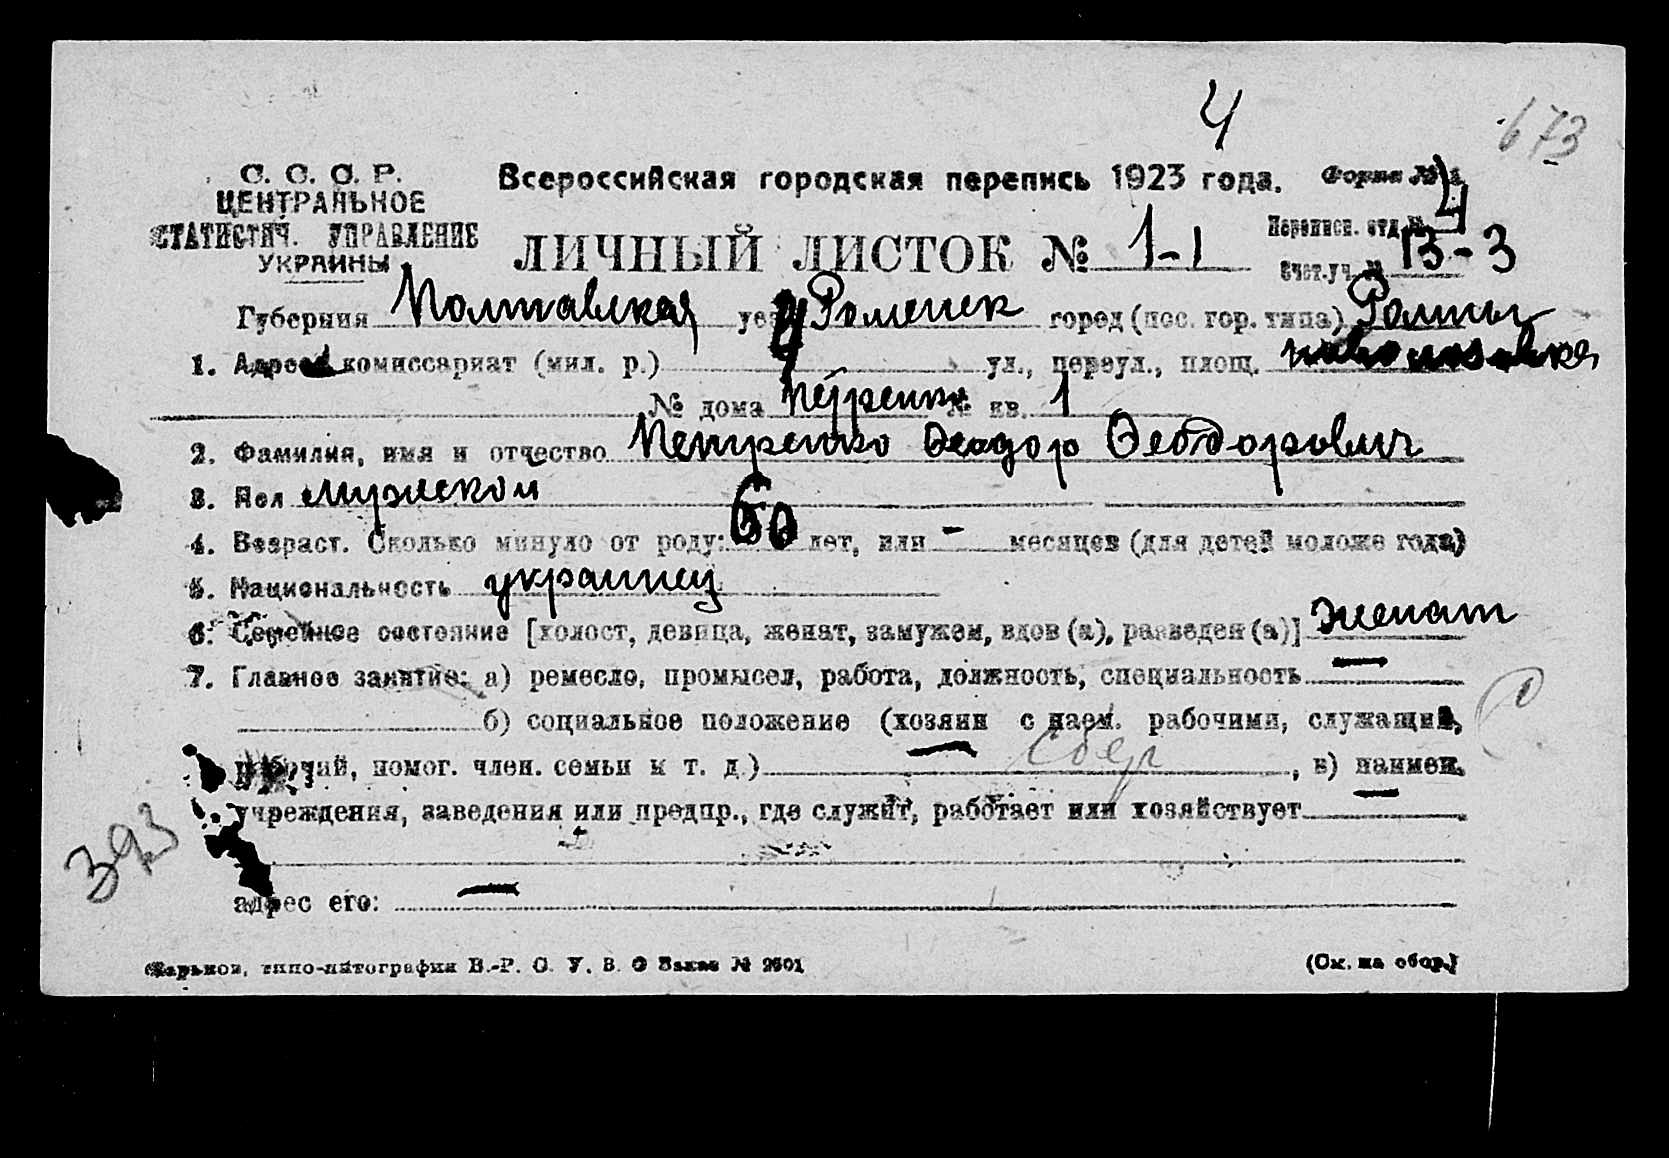 4
673
С. С. С. Р.
ЦЕНТРАЛЬНОЕ
СТАТИСТИЧ. УПРАВЛЕНИЕ
УКРАИНЫ
Всероссийская городская перепись 1923 года.
Форма №
ЛИЧНЫЙ ЛИСТОК № 1-1
Переписн. отд. № 4
Счет.уч. № 13-3
Губерния Полтавская уез Роменск город (пос. гор. типа) Ромны
1. Адрес комиссариат (мил. р.) ул., переул., площ.
№ дома Петренко № кв. 1
2. Фамилия, имя и отчество Петренко Феодор Феодорович
3. Пол мужской
4. Возраст. Сколько минуло от роду: 60 лет, или - месяцев (для детей моложе года)
5. Национальность украинец
6. Семейное состояние [холост, девица, женат, замужем, вдов (а), разведен (а)] женат
7. Главное занятие: а) ремесло, промысел, работа, должность, специальность —
б) социальное положение (хозяин с наем. рабочими, служащий,
рабочий, помог. член. семьи и т. д.) — , в) наимен.
учреждения, заведения или предпр., где служит, работает или хозяйствует —
393
адрес его: —
Харьков, типо-литография В.-Р. С. У. В. О Заказ № 2601
(См. на обор.)